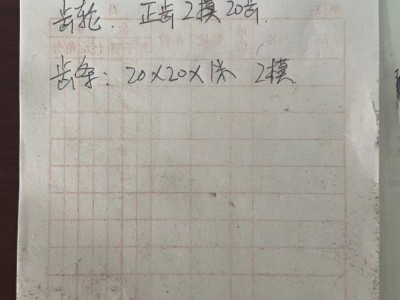 齿轮: 正齿2模20齿
齿条: 20×20×1米 2模